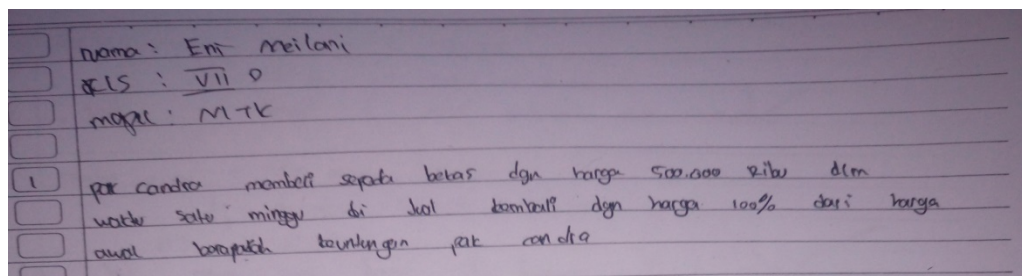 nama : Eni Meilani
kls : VII D
mapel : MTK
1 pak candra membeli sepeda bekas dgn harga 500.000 Ribu dlm
waktu satu minggu di Jual kembali dgn harga 100% dari harga
awal berapakah keuntungan pak candra